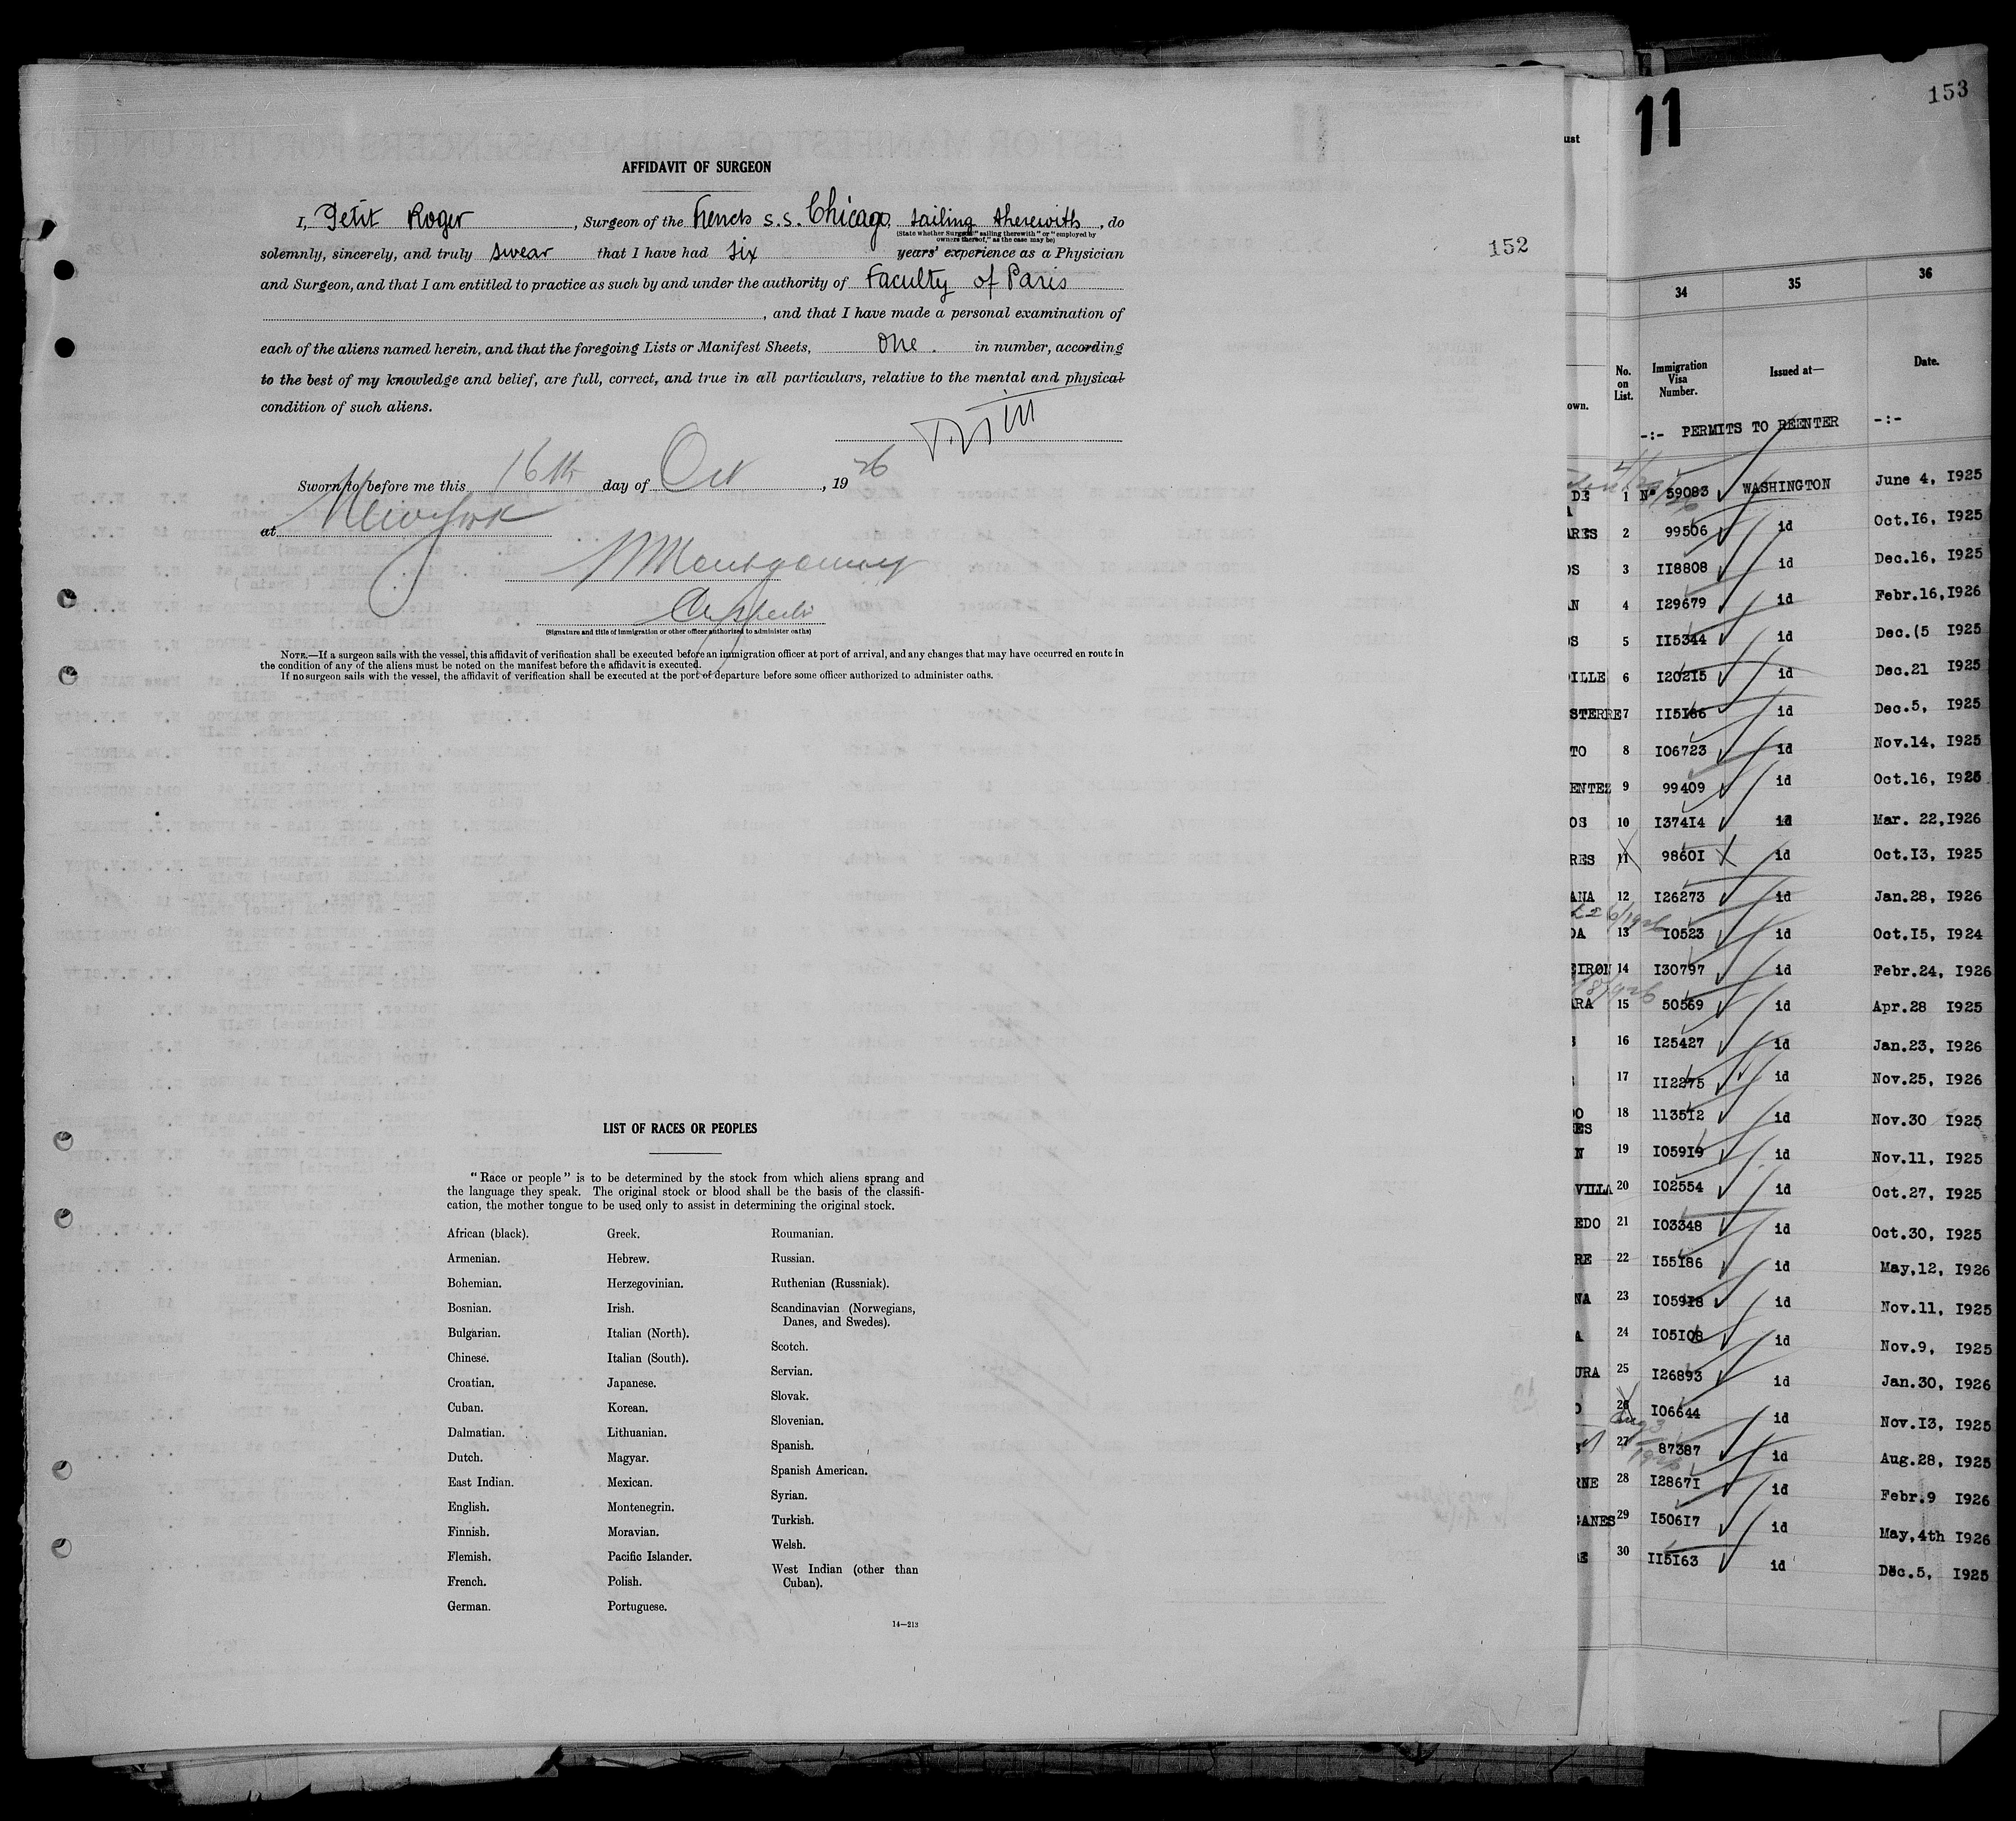 AFFIDAVIT OF SURGEON
I, Petit Roger, Surgeon of the french s.s. Chicago, sailing therewith, do
(State whether Surgeon "sailing therewith" or "employed by
owners thereof," as the case may be)
solemnly, sincerely, and truly swear that I have had six years' experience as a Physician
and Surgeon, and that I am entitled to practice as such by and under the authority of Faculty of Paris
, and that I have made a personal examination of
each of the aliens named herein, and that the foregoing Lists or Manifest Sheets, one. in number, according
to the best of my knowledge and belief, are full, correct, and true in all particulars, relative to the mental and physical
condition of such aliens.
Sworn to before me this 16th day of Oct, 1926
at New York
Montgomery
(Signature and title of immigration or other officer authorized to administer oaths)
NOTE.—If a surgeon sails with the vessel, this affidavit of verification shall be executed before an immigration officer at port of arrival, and any changes that may have occurred en route in
the condition of any of the aliens must be noted on the manifest before the affidavit is executed.
If no surgeon sails with the vessel, the affidavit of verification shall be executed at the port of departure before some officer authorized to administer oaths.
LIST OF RACES OR PEOPLES
"Race or people" is to be determined by the stock from which aliens sprang and
the language they speak. The original stock or blood shall be the basis of the classifi-
cation, the mother tongue to be used only to assist in determining the original stock.
African (black).
Armenian.
Bohemian.
Bosnian.
Bulgarian.
Chinese.
Croatian.
Cuban.
Dalmatian.
Dutch.
East Indian.
English.
Finnish.
Flemish.
French.
German.
Greek.
Hebrew.
Herzegovinian.
Irish.
Italian (North).
Italian (South).
Japanese.
Korean.
Lithuanian.
Magyar.
Mexican.
Montenegrin.
Moravian.
Pacific Islander.
Polish.
Portuguese.
Roumanian.
Russian.
Ruthenian (Russniak).
Scandinavian (Norwegians,
Danes, and Swedes).
Scotch.
Servian.
Slovak.
Slovenian.
Spanish.
Spanish American.
Syrian.
Turkish.
Welsh.
West Indian (other than
Cuban).
14—213
152
11
153
34 35 36
No. on List. Immigration Visa Number. Issued at— Date.
-:- PERMITS TO REENTER -:-
DE 1 No 59083 WASHINGTON June 4, I925
ARES 2 99506 id Oct.I6, I925
OS 3 II8808 id Dec.I6, I925
AN 4 I29679 id Febr.I6,I926
OS 5 II5344 id Dec.(5 I925
DILLE 6 I202I5 id Dec.21 I925
STERRE 7 II5I86 id Dec.5, I925
TO 8 I06723 id Nov.I4, I925
ENTEZ 9 99409 id Oct.I6, I925
OS 10 I374I4 id Mar. 22,I926
RES 11 9860I id Oct.I3, I925
ANA 12 I26273 id Jan.28, I926
DA 13 I0523 id Oct.I5, I924
EIRON 14 I30797 id Febr.24, I926
ARA 15 50569 id Apr.28 I925
16 I25427 id Jan.23, I926
17 II2275 id Nov.25, I926
DO
ES 18 1135I2 id Nov.30 I925
N 19 I059I9 id Nov.11, I925
VILLA 20 I02554 id Oct.27, I925
EDO 21 I03348 id Oct.30, I925
RE 22 I55I86 id May,12, I926
NA 23 I059I8 id Nov.11, I925
A 24 I05I08 id Nov.9, I925
URA 25 I26893 id Jan.30, I926
O 26 I06644 id Nov.I3, I925
27 87387 id Aug.28, I925
RNE 28 I2867I id Febr.9 I926
GANES 29 I506I7 id May,4th I926
RE 30 II5I63 id Dec.5, I925